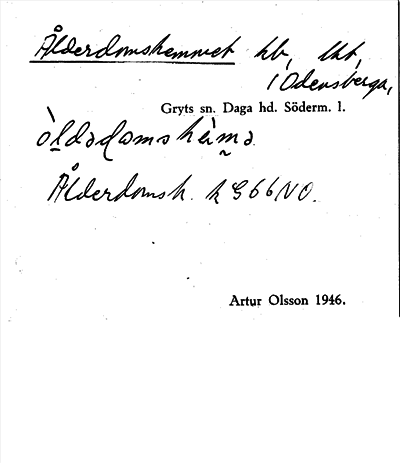 Ålderdomshemmet hb, lht,
i Odensberga,
Gryts sn. Daga hd. Söderm. l.
òldədomshèmə.
Ålderdomsh. k G66NO.
Artur Olsson 1946.